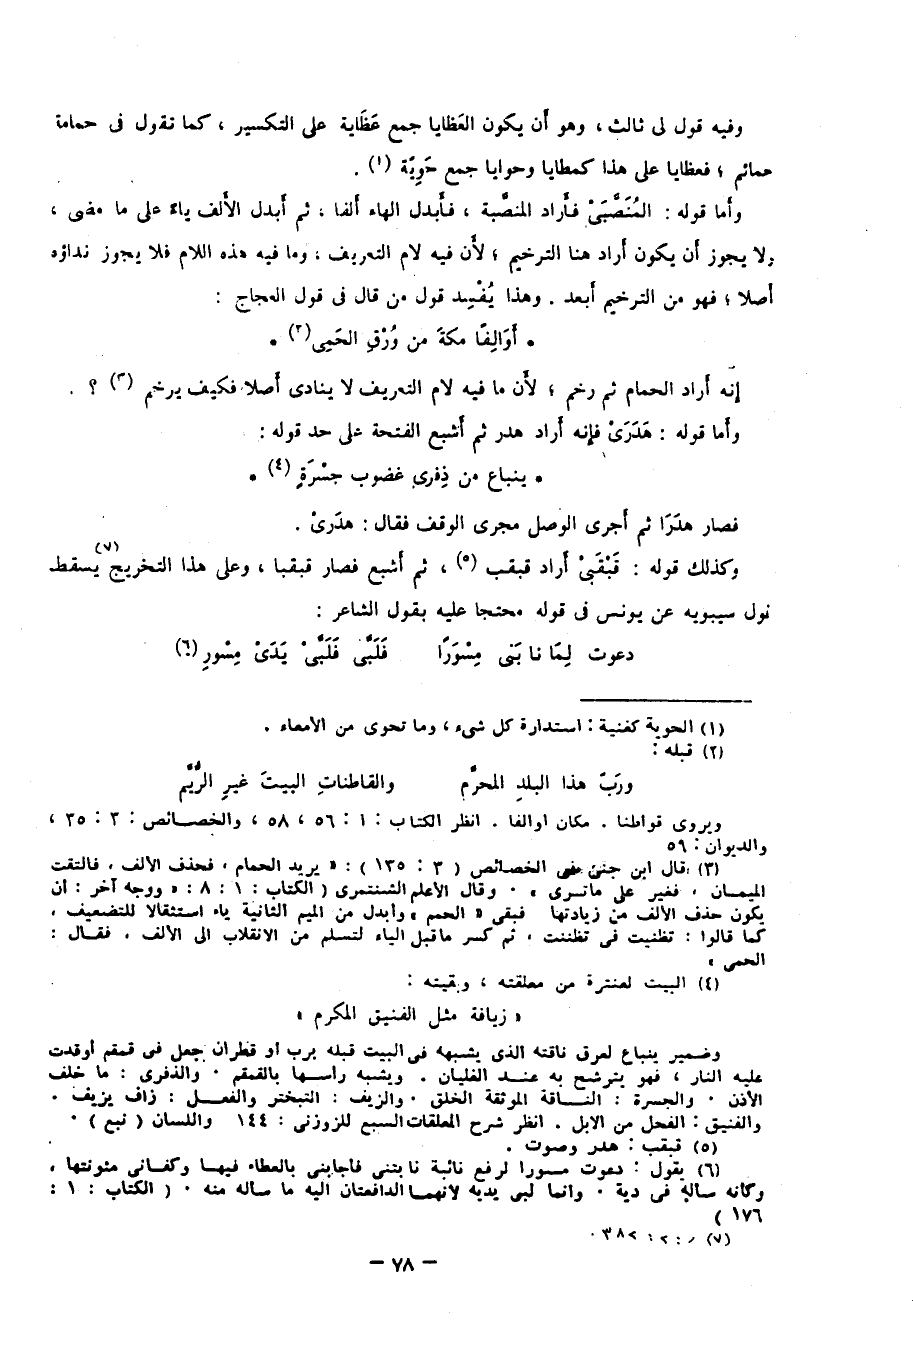 وفيه قول لى ثالث ، وهو أَن يكون العَظايا جمع عَظَاية على التكسير ، كما تقول فى حمامة
حمائم ؛ فعظايا على هذا كمطايا وحوايا جمع حَوِيَّة (١) .
وأما قوله : المُنَصَّبَىْ فأراد المنصَّبة ، فأبدل الهاء ألفا ، ثم أبدل الألف ياءً على ما مضى ،
ولا يجوز أن يكون أراد هنا الترخيم ؛ لأن فيه لام التعريف ، وما فيه هذه اللام فلا يجوز نداؤه
أصلا ؛ فهو من الترخيم أبعد . وهذا يُفْسِد قول من قال فى قول العجاج :
• أَوَالِفًا مكةَ من وُرْقِ الحَمِى (٢) •
إنه أراد الحمام ثم رخم ؛ لأَن ما فيه لام التعريف لا ينادى أصلا فكيف يرخم (٣) ؟ .
وأما قوله : هَدَرَىْ فإنه أراد هدر ثم أشبع الفتحة على حد قوله :
• ينباع من ذِفرى غضوب جسْرَةٍ (٤) •
فصار هدَرَا ثم أجرى الوصل مجرى الوقف فقال : هدَرىْ .
وكذلك قوله : قَبْقَبَىْ أراد قبقب (٥) ، ثم أشبع فصار قبقبا ، وعلى هذا التخريج يسقط (٧)
قول سيبويه عن يونس فى قوله محتجا عليه بقول الشاعر :
دعوت لِمَا نابَنى مِسْوَرًا فَلَبَّى فَلَبَّىْ يَدَىْ مِسْورِ (٦)
(١) الحوية كغنية : استدارة كل شىء ، وما تحوى من الأمعاء .
(٢) قبله :
وربِّ هذا البلدِ المحرَّمِ والقاطناتِ البيتَ غيرِ الرُّيَّمِ
ويروى قواطنا . مكان أوالفا . انظر الكتاب : ١ : ٥٦ ، ٥٨ ، والخصائص : ٣ : ٣٥ ،
والديوان : ٥٩
(٣) قال ابن جنى فى الخصائص ( ٣ : ١٣٥ ) : « يريد الحمام ، فحذف الألف ، فالتقت
الميمان ، فغير على ماترى » ٠ وقال الأعلم الشنتمرى ( الكتاب : ١ : ٨ : « ووجه آخر : أن
يكون حذف الألف من زيادتها فبقى « الحمم » وأبدل من الميم الثانية ياء استثقالا للتضعيف ،
كما قالوا : تظنيت فى تظننت ، ثم كسر ماقبل الياء لتسلم من الانقلاب الى الألف ، فقال :
الحمى »
(٤) البيت لعنترة من معلقته ، وبقيته :
« زيافة مثل الفنيق المكرم »
وضمير ينباع لعرق ناقته الذى يشبهه فى البيت قبله برب أو قطران جعل فى قمقم أوقدت
عليه النار ، فهو يترشح به عند الغليان . ويشبه رأسها بالقمقم ٠ والذفرى : ما خلف
الأذن ٠ والجسرة : الناقة الموثقة الخلق ٠ والزيف : التبختر والفعل : زاف يزيف ٠
والفنيق : الفحل من الابل . انظر شرح المعلقات السبع للزوزنى : ١٤٤ واللسان ( نبع ) ٠
(٥) قبقب : هدر وصوت .
(٦) يقول : دعوت مسورا لرفع نائبة نابتنى فأجابنى بالعطاء فيها وكفانى مئونتها ،
وكأنه سأله فى دية ٠ وانما لبى يديه لأنهما الدافعتان اليه ما سأله منه ٠ ( الكتاب : ١ :
١٧٦ )
(٧)
– ٧٨ –